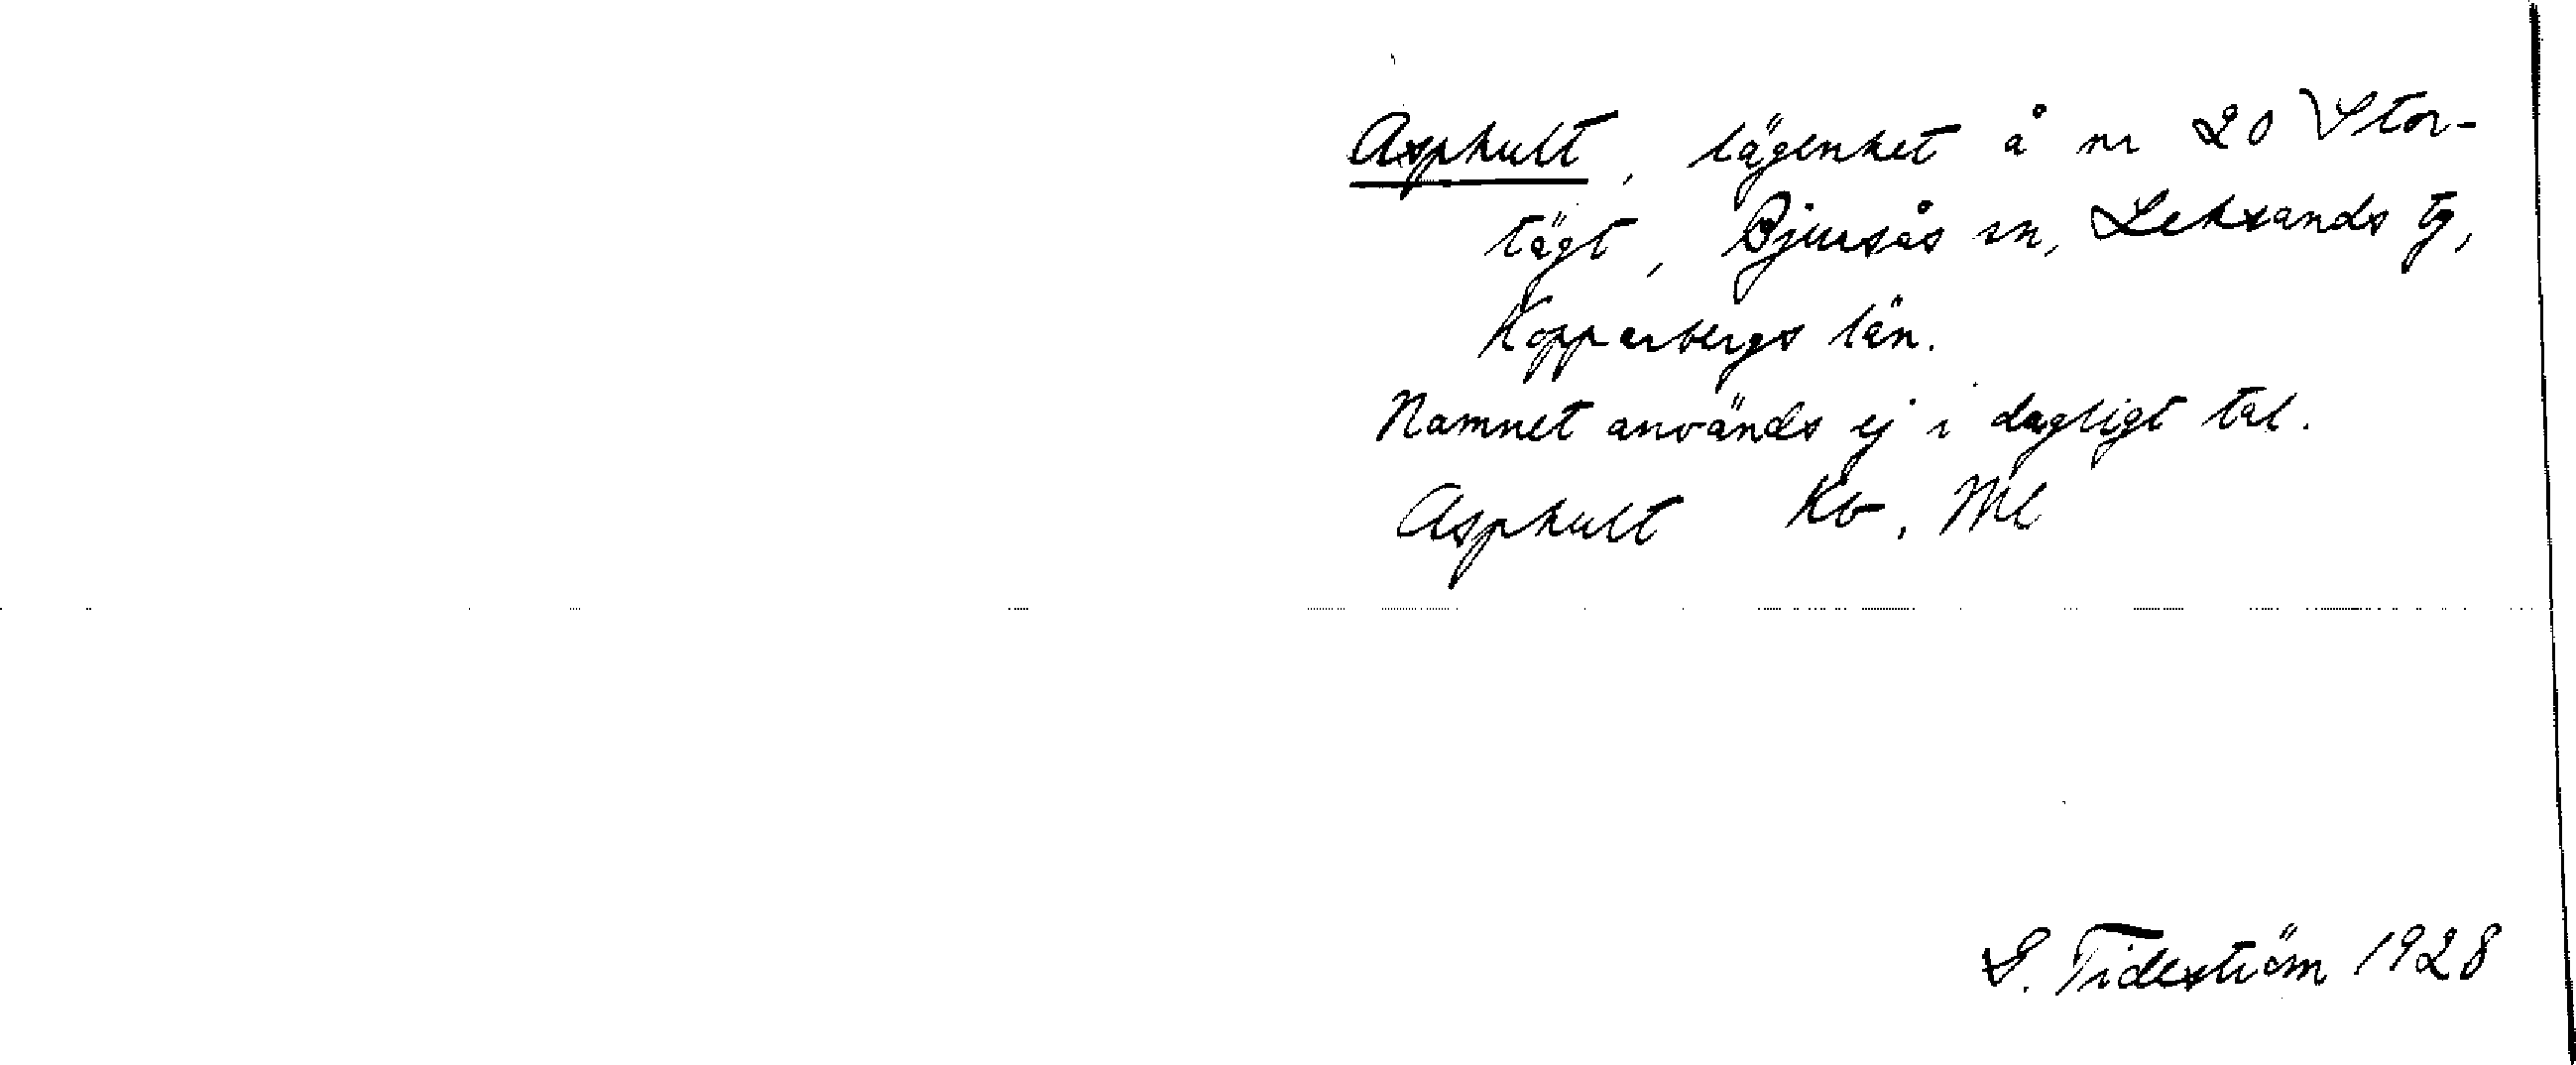 Asphult, lägenhet å nr 20 Stor-
tägt, Bjursås sn, Leksands tg,
Kopparbergs län.
Namnet används ej i dagligt tal.
Asphult Kb, Ml
G. Tideström 1928